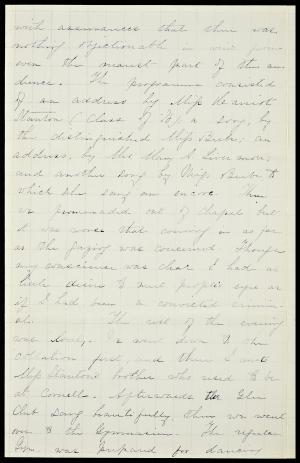 with assurances that there was
nothing objectionable in view from
even the nearest part of the au-
dience. The programme consisted
of an address by Miss Harriot
Stanton (Class of '78) a song, by
the distinguished Miss Beebe; an
address, by Mrs Mary A. Livermore;
and another song by Miss Beebe to
which she sang an encore. Then
we promenaded out of chapel but
it was worse that coming in as far
as the gazing was concerned. Though
my conscience was clear I had as
little desire to meet people's eyes as
if I had been a convicted crimin-
al. The rest of the evening
was lovely. We went down to the
collation first, and there I met
Miss Stanton's brother who used to be
at Cornell. Afterwards the Glee
Club sang beautifully then we went
over to the Gymnasium. The regular
Gym. was prepared for dancing